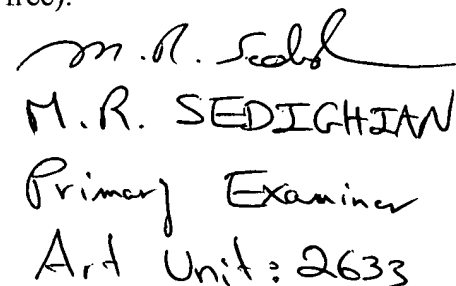 free).
M.R. Sedigh
M.R. SEDIGHIAN
Primary Examiner
Art Unit: 2633